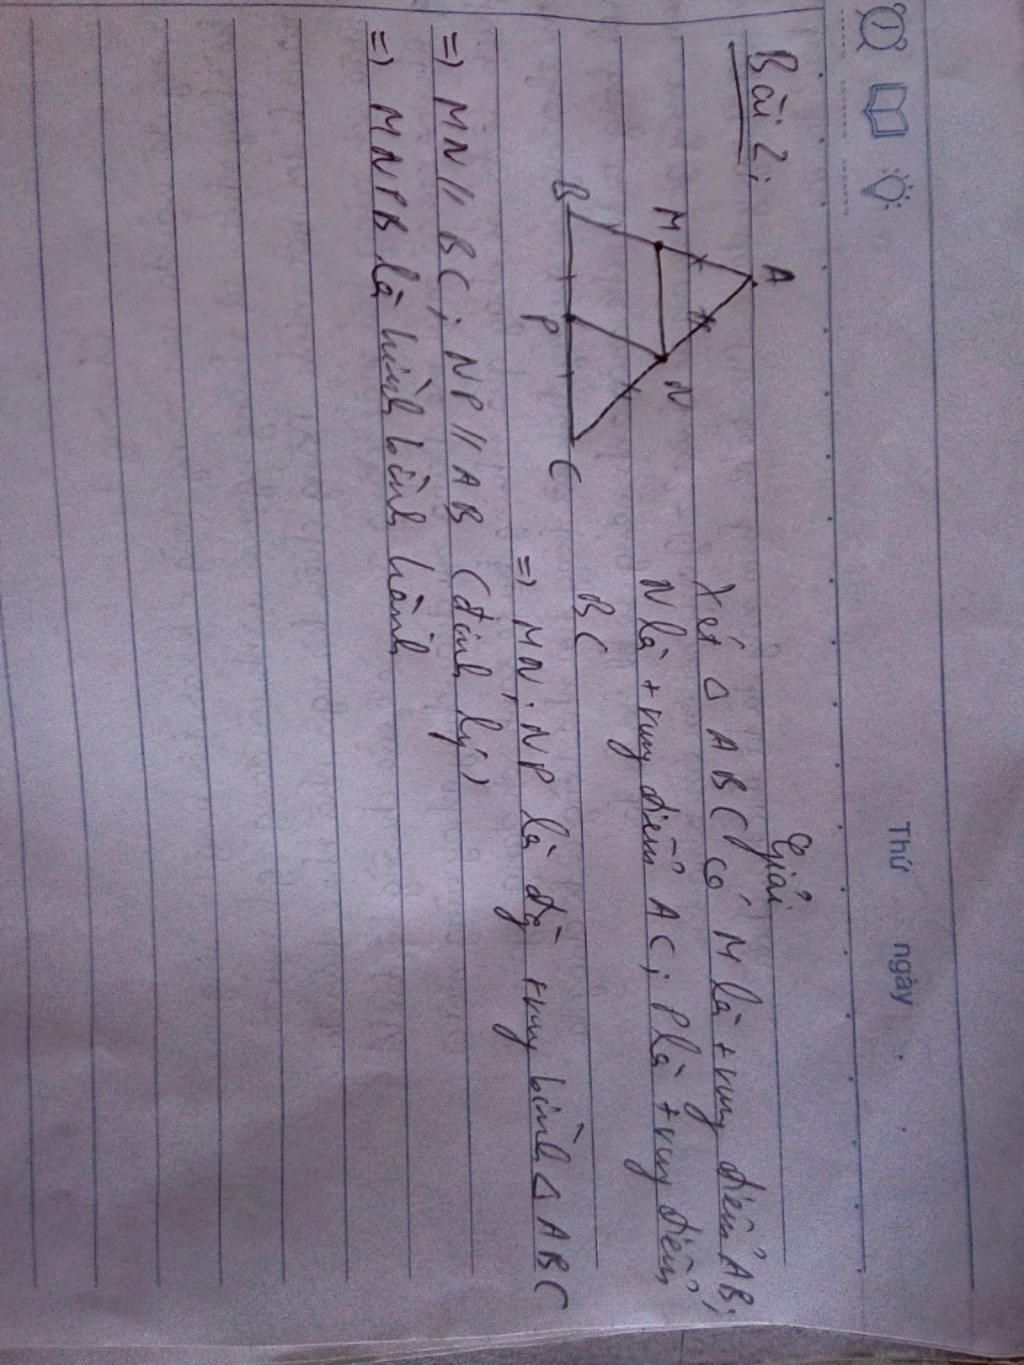 Thứ ngày
Bài 2:
Giải
A
M
N
B
P
C
Xét Δ ABC có M là trung điểm AB;
N là trung điểm AC; P là trung điểm
BC
=) MN; NP là đg trung bình Δ ABC
=) MN // BC; NP // AB (định lý)
=) MNPB là hình bình hành